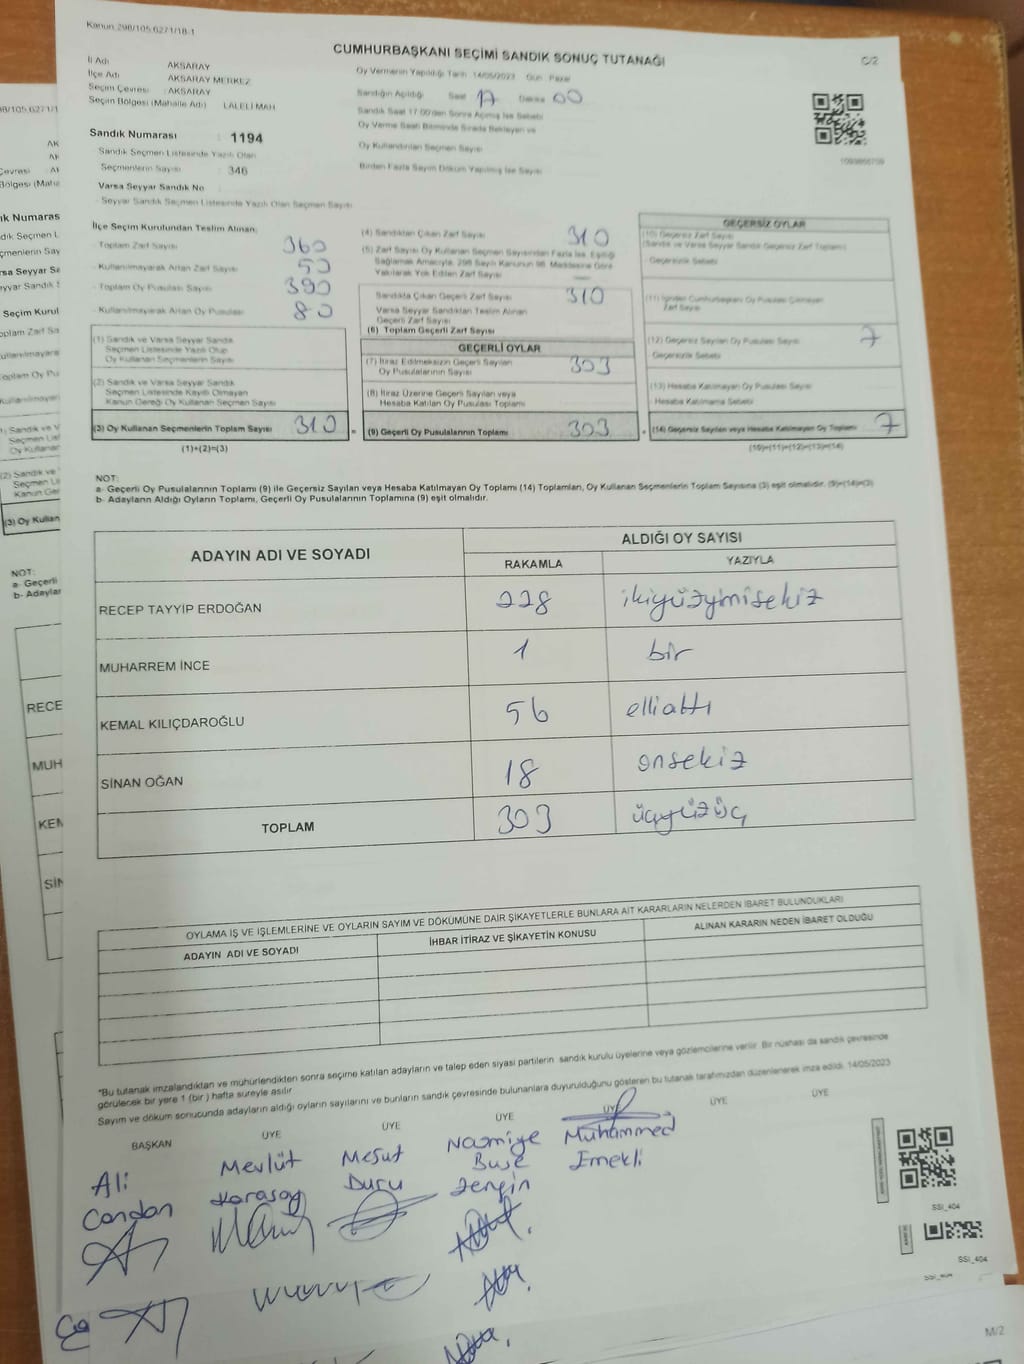 Kanun 298/105.6271/18-1
CUMHURBAŞKANI SEÇİMİ SANDIK SONUÇ TUTANAĞI
C/2
İl Adı AKSARAY
İlçe Adı AKSARAY MERKEZ
Seçim Çevresi : AKSARAY
Seçim Bölgesi (Mahalle Adı) LALELİ MAH
Oy Vermenin Yapıldığı Tarih 14/05/2023 Gün Pazar
Sandığın Açıldığı Saat 17 Dakika 00
Sandık Saat 17.00'den Sonra Açılmış İse Sebebi
Oy Verme Saati Bitiminde Sırada Bekleyen ve
Oy Kullandırılan Seçmen Sayısı
Birden Fazla Sayım Döküm Yapılmış İse Sayısı
Sandık Numarası : 1194
Sandık Seçmen Listesinde Yazılı Olan
Seçmenlerin Sayısı : 346
Varsa Seyyar Sandık No
Seyyar Sandık Seçmen Listesinde Yazılı Olan Seçmen Sayısı
İlçe Seçim Kurulundan Teslim Alınan;
Toplam Zarf Sayısı 360
Kullanılmayarak Artan Zarf Sayısı 50
Toplam Oy Pusulası Sayısı 390
Kullanılmayarak Artan Oy Pusulası 80
(1) Sandık ve Varsa Seyyar Sandık
Seçmen Listesinde Yazılı Olup
Oy Kullanan Seçmenlerin Sayısı
(2) Sandık ve Varsa Seyyar Sandık
Seçmen Listesinde Kayıtlı Olmayan
Kanun Gereği Oy Kullanan Seçmen Sayısı
(3) Oy Kullanan Seçmenlerin Toplam Sayısı 310
(1)+(2)=(3)
(4) Sandıktan Çıkan Zarf Sayısı 310
(5) Zarf Sayısı Oy Kullanan Seçmen Sayısından Fazla İse, Eşitliği
Sağlamak Amacıyla, 298 Sayılı Kanunun 98. Maddesine Göre
Yakılarak Yok Edilen Zarf Sayısı
Sandıkta Çıkan Geçerli Zarf Sayısı 310
Varsa Seyyar Sandıktan Teslim Alınan
Geçerli Zarf Sayısı
(6) Toplam Geçerli Zarf Sayısı
GEÇERLİ OYLAR
(7) İtiraz Edilmeksizin Geçerli Sayılan
Oy Pusulalarının Sayısı 303
(8) İtiraz Üzerine Geçerli Sayılan veya
Hesaba Katılan Oy Pusulası Toplamı
= (9) Geçerli Oy Pusulalarının Toplamı 303
GEÇERSİZ OYLAR
(10) Geçersiz Zarf Sayısı
(Sandık ve Varsa Seyyar Sandık Geçersiz Zarf Toplamı)
Geçersizlik Sebebi
(11) İçinden Cumhurbaşkanı Oy Pusulası Çıkmayan
Zarf Sayısı
(12) Geçersiz Sayılan Oy Pusulası Sayısı 7
Geçersizlik Sebebi
(13) Hesaba Katılmayan Oy Pusulası Sayısı
Hesaba Katılmama Sebebi
+ (14) Geçersiz Sayılan veya Hesaba Katılmayan Oy Toplamı 7
(10)+(11)+(12)+(13)=(14)
NOT:
a- Geçerli Oy Pusulalarının Toplamı (9) ile Geçersiz Sayılan veya Hesaba Katılmayan Oy Toplamı (14) Toplamları, Oy Kullanan Seçmenlerin Toplam Sayısına (3) eşit olmalıdır. (9)+(14)=(3)
b- Adayların Aldığı Oyların Toplamı, Geçerli Oy Pusulalarının Toplamına (9) eşit olmalıdır.
ADAYIN ADI VE SOYADI
ALDIĞI OY SAYISI
RAKAMLA YAZIYLA
RECEP TAYYİP ERDOĞAN 228 ikiyüzyimisekiz
MUHARREM İNCE 1 bir
KEMAL KILIÇDAROĞLU 56 ellialtı
SİNAN OĞAN 18 onsekiz
TOPLAM 303 üçyüzüç
OYLAMA İŞ VE İŞLEMLERİNE VE OYLARIN SAYIM VE DÖKÜMÜNE DAİR ŞİKAYETLERLE BUNLARA AİT KARARLARIN NELERDEN İBARET BULUNDUKLARI
ADAYIN ADI VE SOYADI
İHBAR İTİRAZ VE ŞİKAYETİN KONUSU
ALINAN KARARIN NEDEN İBARET OLDUĞU
"Bu tutanak imzalandıktan ve mühürlendikten sonra seçime katılan adayların ve talep eden siyasi partilerin sandık kurulu üyelerine veya gözlemcilerine verilir. Bir nüshası da sandık çevresinde
görülecek bir yere 1 (bir) hafta süreyle asılır
Sayım ve döküm sonucunda adayların aldığı oyların sayılarını ve bunların sandık çevresinde bulunanlara duyurulduğunu gösteren bu tutanak tarafımızdan düzenlenerek imza edildi. 14/05/2023
BAŞKAN ÜYE ÜYE ÜYE ÜYE ÜYE ÜYE
Ali Mevlüt Mesut Nazmiye Muhammed
Candan Karasoy Duru Buse Emekli
Zengin
SSI_404
SSI_404
M/2